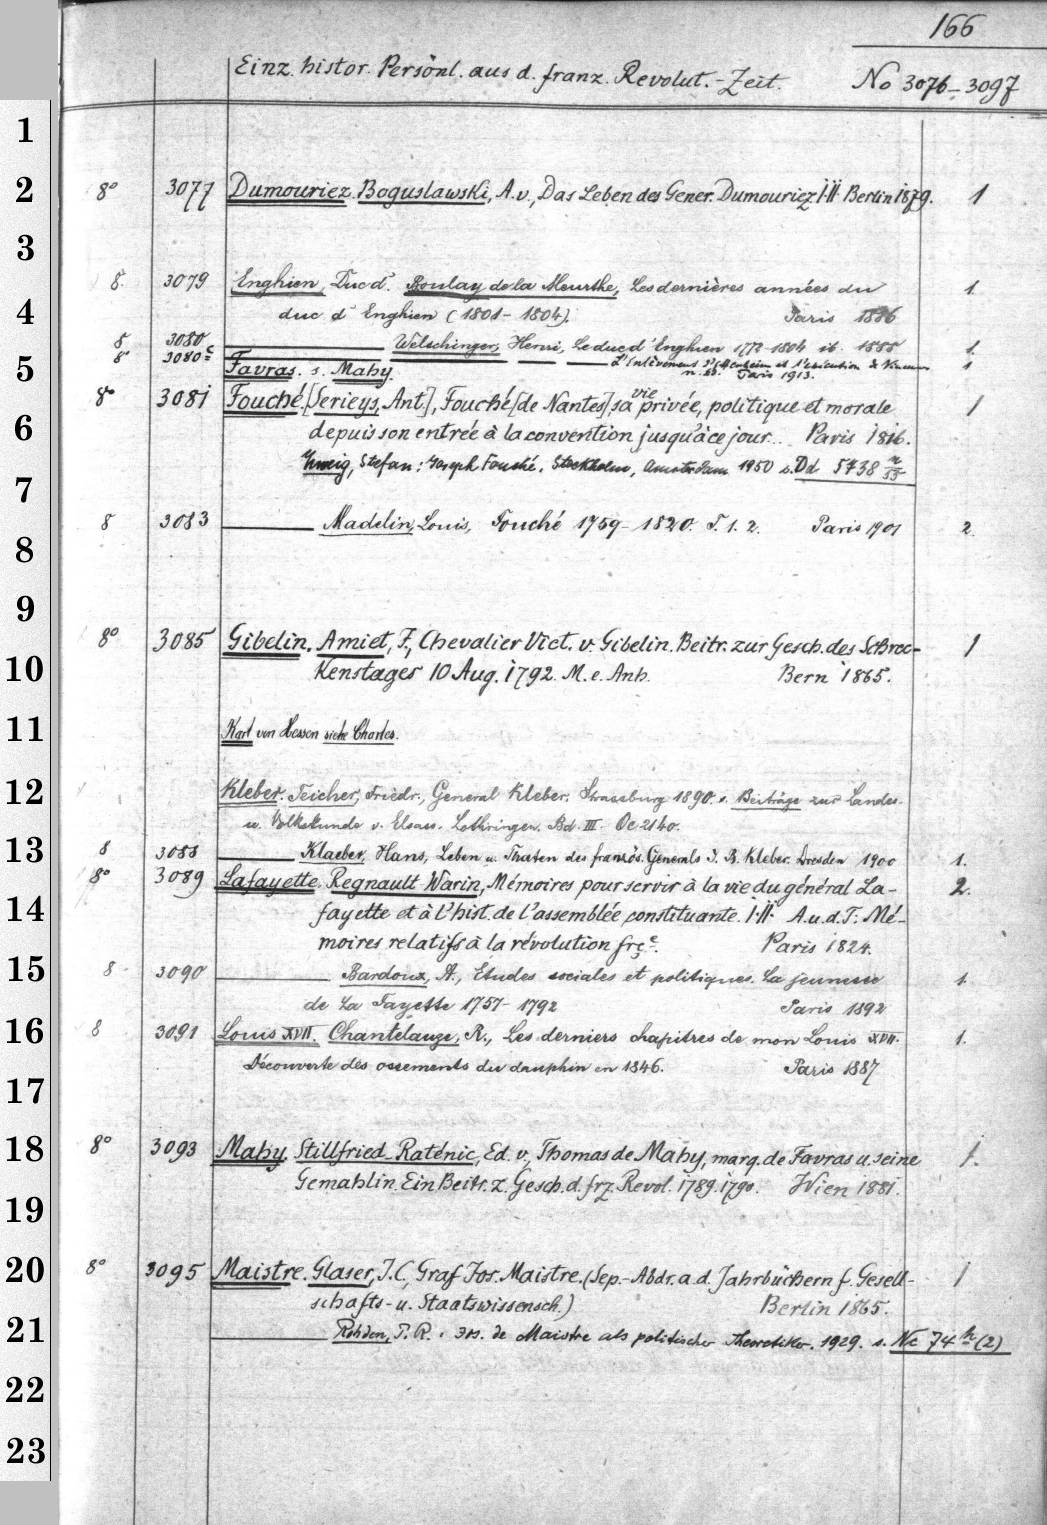 166
Einz. histor. Persönl. aus d. franz. Revolut.-Zeit. No 3076-3097
1
2 8° 3077 Dumouriez. Boguslawski, A. v., Das Leben des Gener. Dumouriez I-II. Berlin 1879. 1
3
8. 3079 Enghien, Duc d'. Boulay de la Meurthe, Les dernières années du 1.
4 duc d'Enghien (1801-1804). Paris 1886
8 3080 Welschinger, Henri, Le duc d'Enghien 1772-1804 ib. 1888 1.
8° 3080c L'Enlèvement d'Ettenheim et l'exécution de Vincennes 1
5 Favras. s. Mahy. Paris 1913.
8° 3081 Fouché. [Serieys, Ant.], Fouché [de Nantes] sa vie privée, politique et morale 1
6 depuis son entrée à la convention jusqu'à ce jour... Paris 1816.
Zweig, Stefan: Joseph Fouché. Stockholm, Amsterdam 1950 s. Dd 5738
7
8 3083 Madelin, Louis, Fouché 1759-1820. T. 1. 2. Paris 1901 2.
8
9
8° 3085 Gibelin. Amiet, J., Chevalier Vict. v. Gibelin. Beitr. zur Gesch. des Schrec- 1
10 kenstages 10 Aug. 1792. M. e. Anh. Bern 1865.
11 Karl von Hessen siehe Charles.
12 Kleber. Teicher, Friedr., General Kleber. Strassburg 1890. s. Beiträge zur Landes-
u. Volkskunde v. Elsass-Lothringen. Bd. III. Oc 2140.
13 8 3088 Klaeber, Hans, Leben u. Thaten des französ. Generals J. B. Kleber. Dresden 1900 1.
8° 3089 Lafayette. Regnault Warin, Mémoires pour servir à la vie du général La- 2.
14 fayette et à l'hist. de l'assemblée constituante. I.II. A.u.d.T: Mé-
moires relatifs à la révolution frçe. Paris 1824.
15 8 3090 Bardoux, A., Etudes sociales et politiques. La jeunesse 1.
de La Fayette 1757-1792 Paris 1892
16 8 3091 Louis XVII. Chantelauze, R., Les derniers chapitres de mon Louis XVII. 1.
Découverte des ossements du dauphin en 1846. Paris 1887
17
18 8° 3093 Mahy. Stillfried-Raténic, Ed. v., Thomas de Mahy, marq. de Favras u. seine 1.
Gemahlin. Ein Beitr. z. Gesch. d. frz. Revol. 1789.1790. Wien 1881.
19
20 8° 3095 Maistre. Glaser, J.C., Graf Jos. Maistre. (Sep.-Abdr. a. d. Jahrbüchern f. Gesell- 1
schafts- u. Staatswissensch.) Berlin 1865.
21 Rohden, P. R.: Jos. de Maistre als politischer Theoretiker. 1929. s. Ne 74 h (2)
22
23